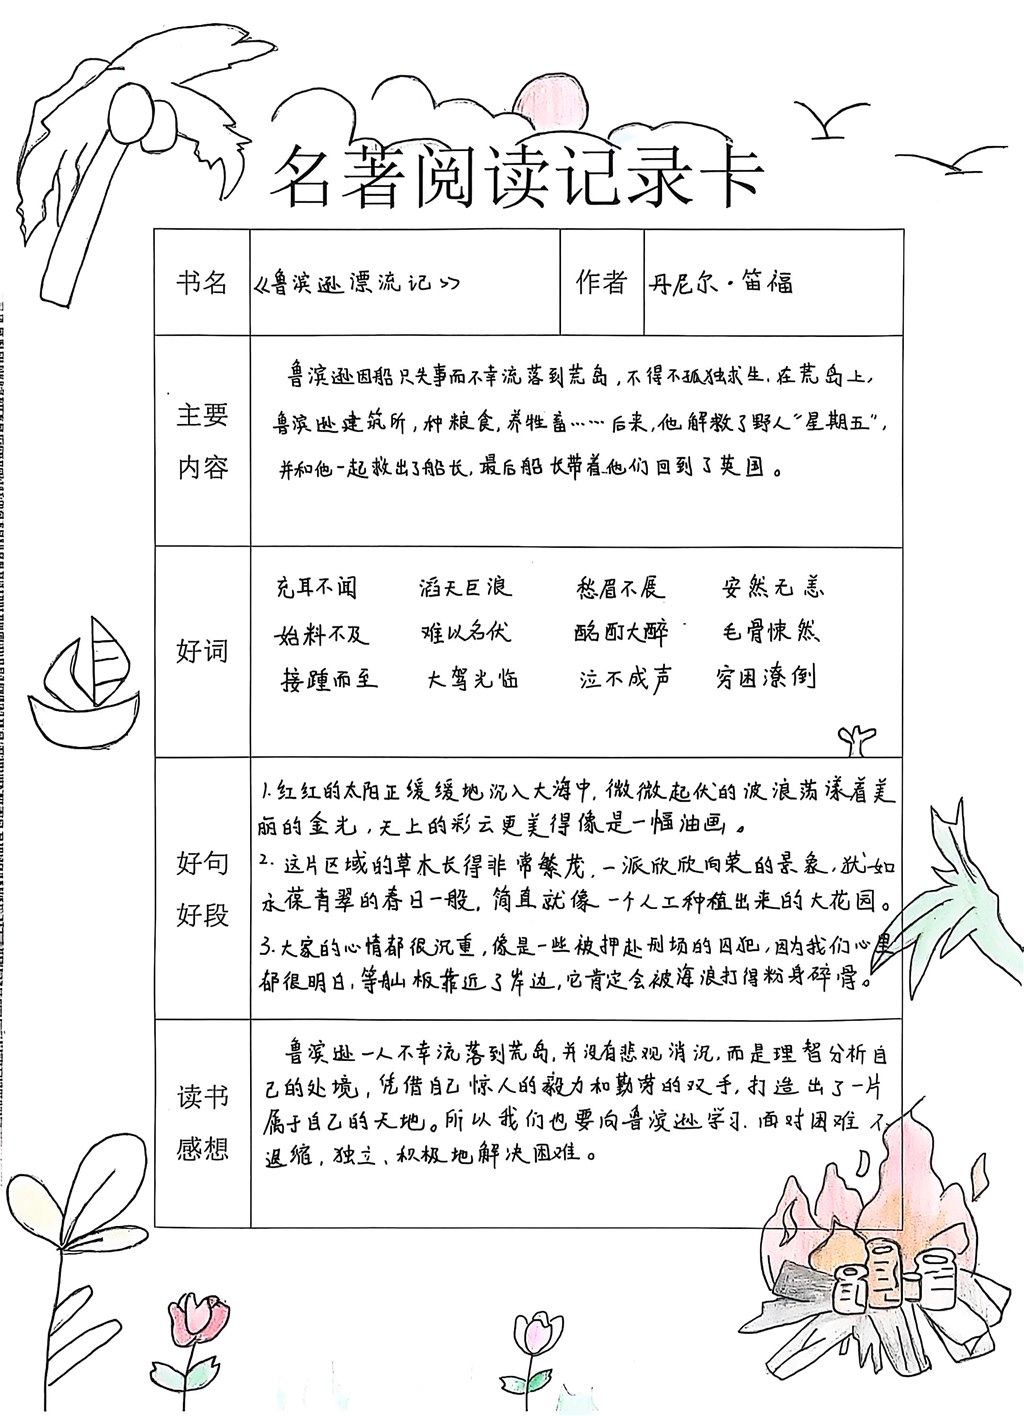 名著阅读记录卡
书名 《鲁滨逊漂流记》 作者 丹尼尔·笛福
主要内容
鲁滨逊因船只失事而不幸流落到荒岛，不得不孤独求生。在荒岛上，
鲁滨逊建筑所，种粮食，养牲畜……后来，他解救了野人“星期五”，
并和他一起救出了船长，最后船长带着他们回到了英国。
好词
充耳不闻 滔天巨浪 愁眉不展 安然无恙
始料不及 难以名伏 酩酊大醉 毛骨悚然
接踵而至 大驾光临 泣不成声 穷困潦倒
好句好段
1.红红的太阳正缓缓地沉入大海中，微微起伏的波浪荡漾着美
丽的金光，天上的彩云更美得像是一幅油画。
2.这片区域的草木长得非常繁茂，一派欣欣向荣的景象，犹如
永葆青翠的春日一般，简直就像一个人工种植出来的大花园。
3.大家的心情都很沉重，像是一些被押赴刑场的囚犯，因为我们心里
都很明白，等舢板靠近了岸边，它肯定会被海浪打得粉身碎骨。
读书感想
鲁滨逊一人不幸流落到荒岛，并没有悲观消沉，而是理智分析自
己的处境，凭借自己惊人的毅力和勤劳的双手，打造出了一片
属于自己的天地。所以我们也要向鲁滨逊学习，面对困难不
退缩，独立、积极地解决困难。